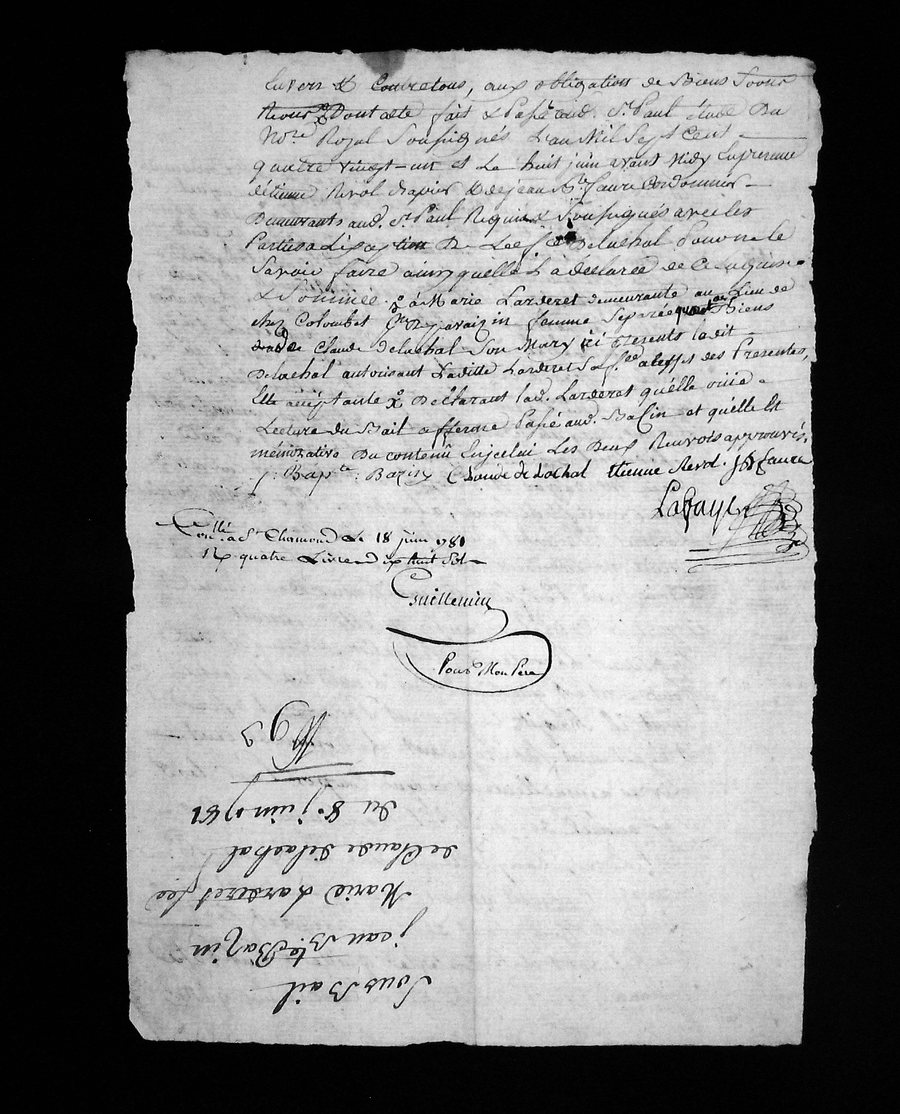 Envers & Contre tous, aux obligation de Biens
dont acte fait & Passé aud. St. Paul étude du
Nore. Royal Soussignés L'an Mil Sept Cent
quatre vingt-un et Le huit juin avant Midy En presence
detienne Revol drapier & de jean Bte. faure Cordonnier
Demeurants aud. St. Paul Requis & Soussignés avec les
Parties a L'exception De La ditte f. Delachal Pour ne le
Savoir faire ainsy quelle l'a declarée de ce Enquise
& Sommée. à Marie Larderet demeurante au Lieu de
chez Colombet femme Separée quand aux Biens
de Claude delachal Son Mary ici presents Ledit
Delachal autorisant Laditte Larderet Sa f. a leffet des Presentes,
Elle acceptante Declarant lad. Larderet qu'elle a ouie
Lecture du Bail a fferme Passé aud. Bazin et qu'elle Est
mémorative Du contenû En jcelui Les Deux Renvois approuvés.
j. Bapte. Bazin Claude de Lachal etienne Revol. jB faure
Lafayet
Conllé. a St. Chamond Le 18 juin 1781
R quatre Livres dix huit Sols
Guillemin
Pour Mon Pere
No 93
du 8. juin 1781
de Claude Delachal
Marie Larderet fee
jean Bte. Bazin
Sous Bail